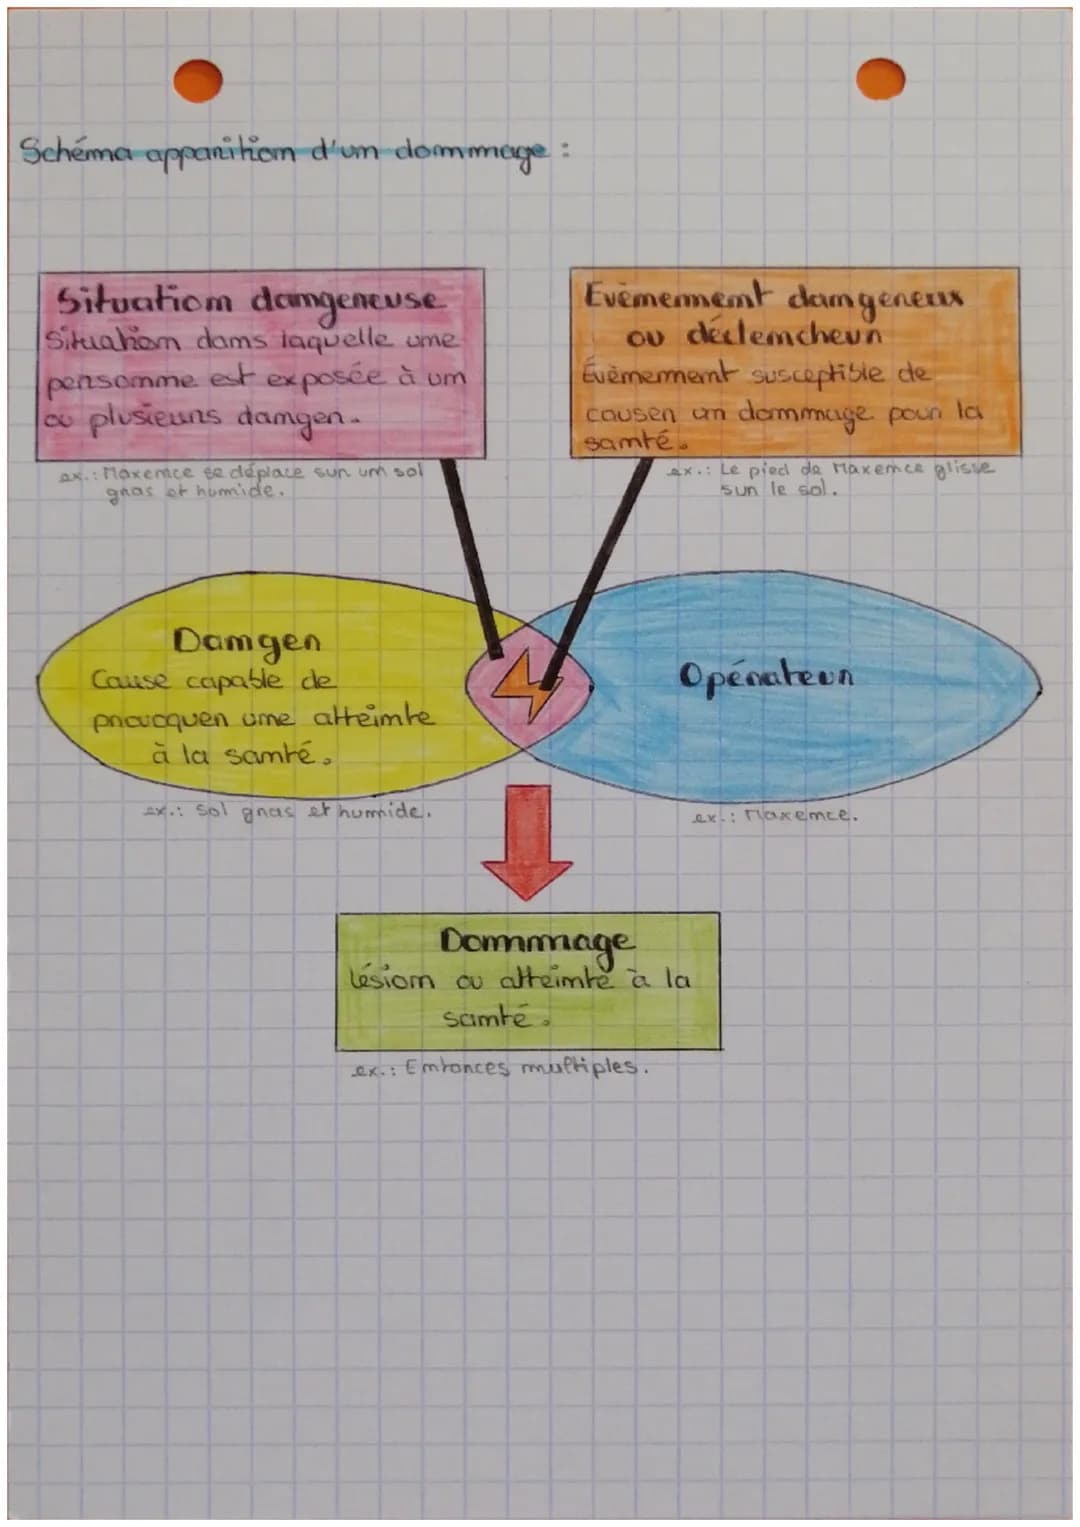 Schéma apparition d'un dommage :
Situation dangereuse
Situation dans laquelle une
personne est exposée à un
ou plusieurs danger.
ex.: Maxence se déplace sur un sol
gras et humide.
Evènement dangereux
ou déclencheur
Évènement susceptible de
causer un dommage pour la
santé.
ex.: Le pied de Maxence glisse
sur le sol.
Danger
Cause capable de
provoquer une atteinte
à la santé.
ex.: Sol gras et humide.
Opérateur
ex.: Maxence.
Dommage
Lésion ou atteinte à la
santé.
ex.: Entorces multiples.